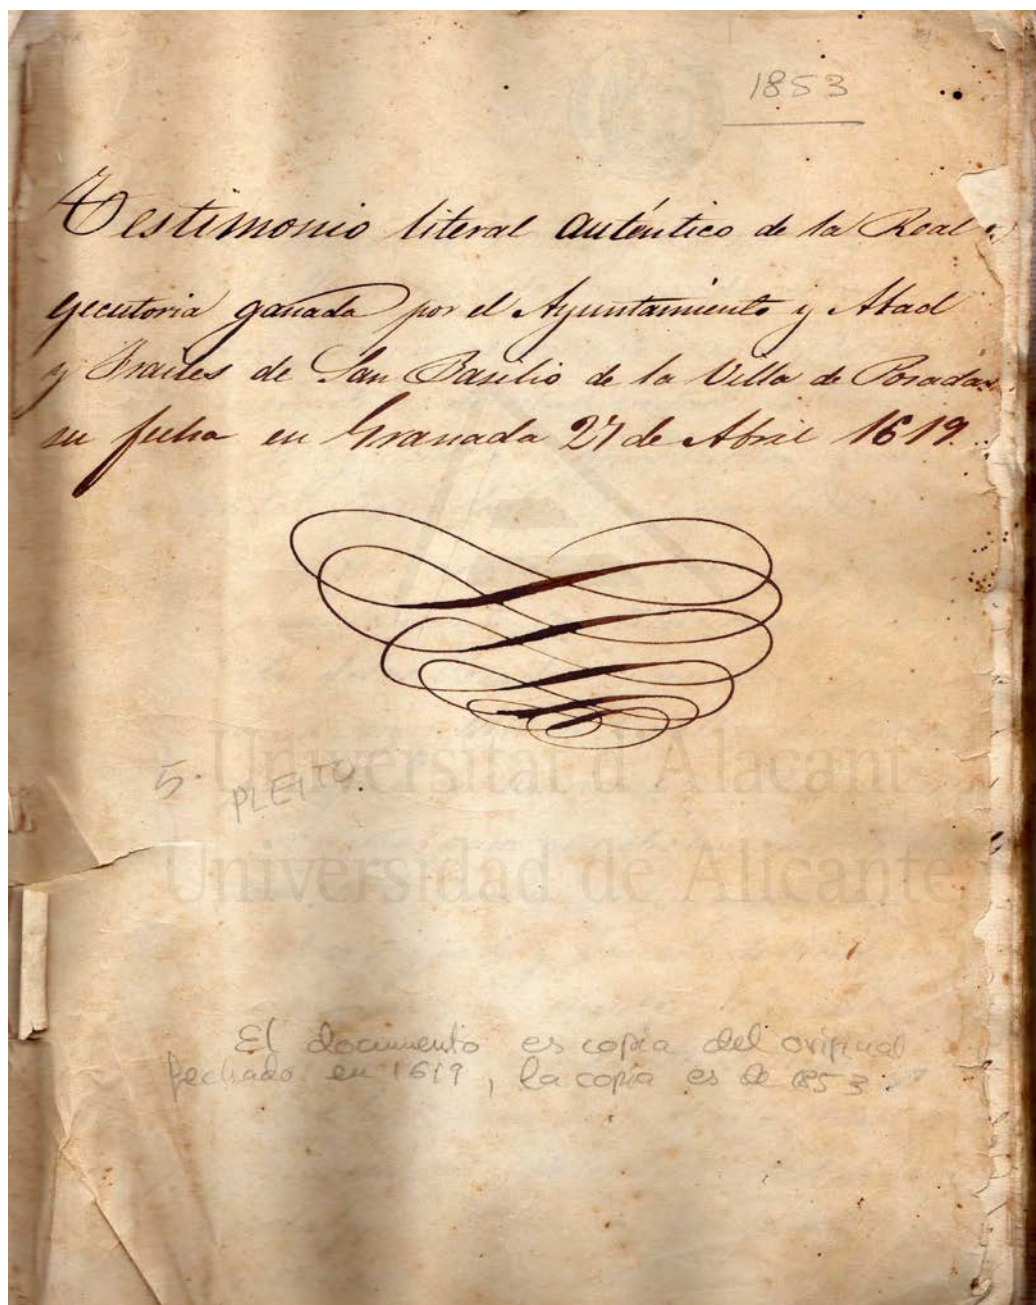 1853
Testimonio literal auténtico de la Real
egecutoria ganada por el Ayuntamiento y Abad
y Frailes de San Basilio de la Villa de Posadas
su fecha en Granada 27 de Abril 1619.
5. PLEITO.
Universitat d'Alacant
Universidad de Alicante
El documento es copia del original
fechado en 1619, la copia es de 1853